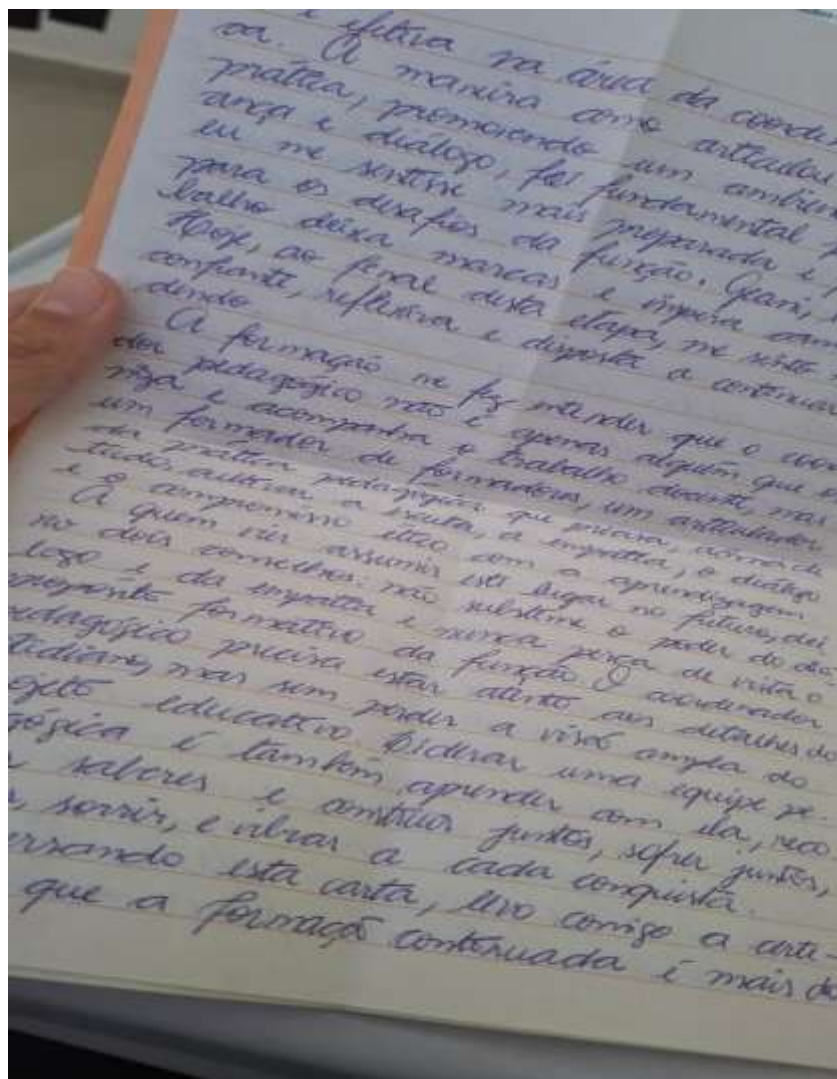 e efetiva na área da coorde
va. A maneira como articulou
prática, promovendo um ambien
ança e diálogo, foi fundamental p
eu me sentisse mais preparada e
para os desafios da função. Geani,
balho deixa marcas e inspira cam
Hoje, ao final desta etapa, me sinto
confiante, reflexiva e disposta a continuar
dendo
A formação me fez entender que o coor
dor pedagógico não é apenas alguém que
niza e acompanha o trabalho docente, mas
um formador de formadores, um articulador
da prática pedagógica que precisa, acima de
tudo, cultivar a escuta, a empatia, o diálogo
e o compromisso ético com a aprendizagem
A quem vier assumir este lugar no futuro, dei
xo dois conselhos: não subestime o poder do diá-
logo e da empatia e nunca perca de vista o
propósito formativo da função. O coordenador
pedagógico precisa estar atento aos detalhes do
tidiano, mas sem perder a visão ampla do
ojeto educativo. Liderar uma equipe pe-
gógica é também aprender com ela,
r saberes e construir juntos, sofrer juntos,
r, sorrir, e vibrar a cada conquista.
errando esta carta, levo comigo a certe-
que a formação continuada é mais do